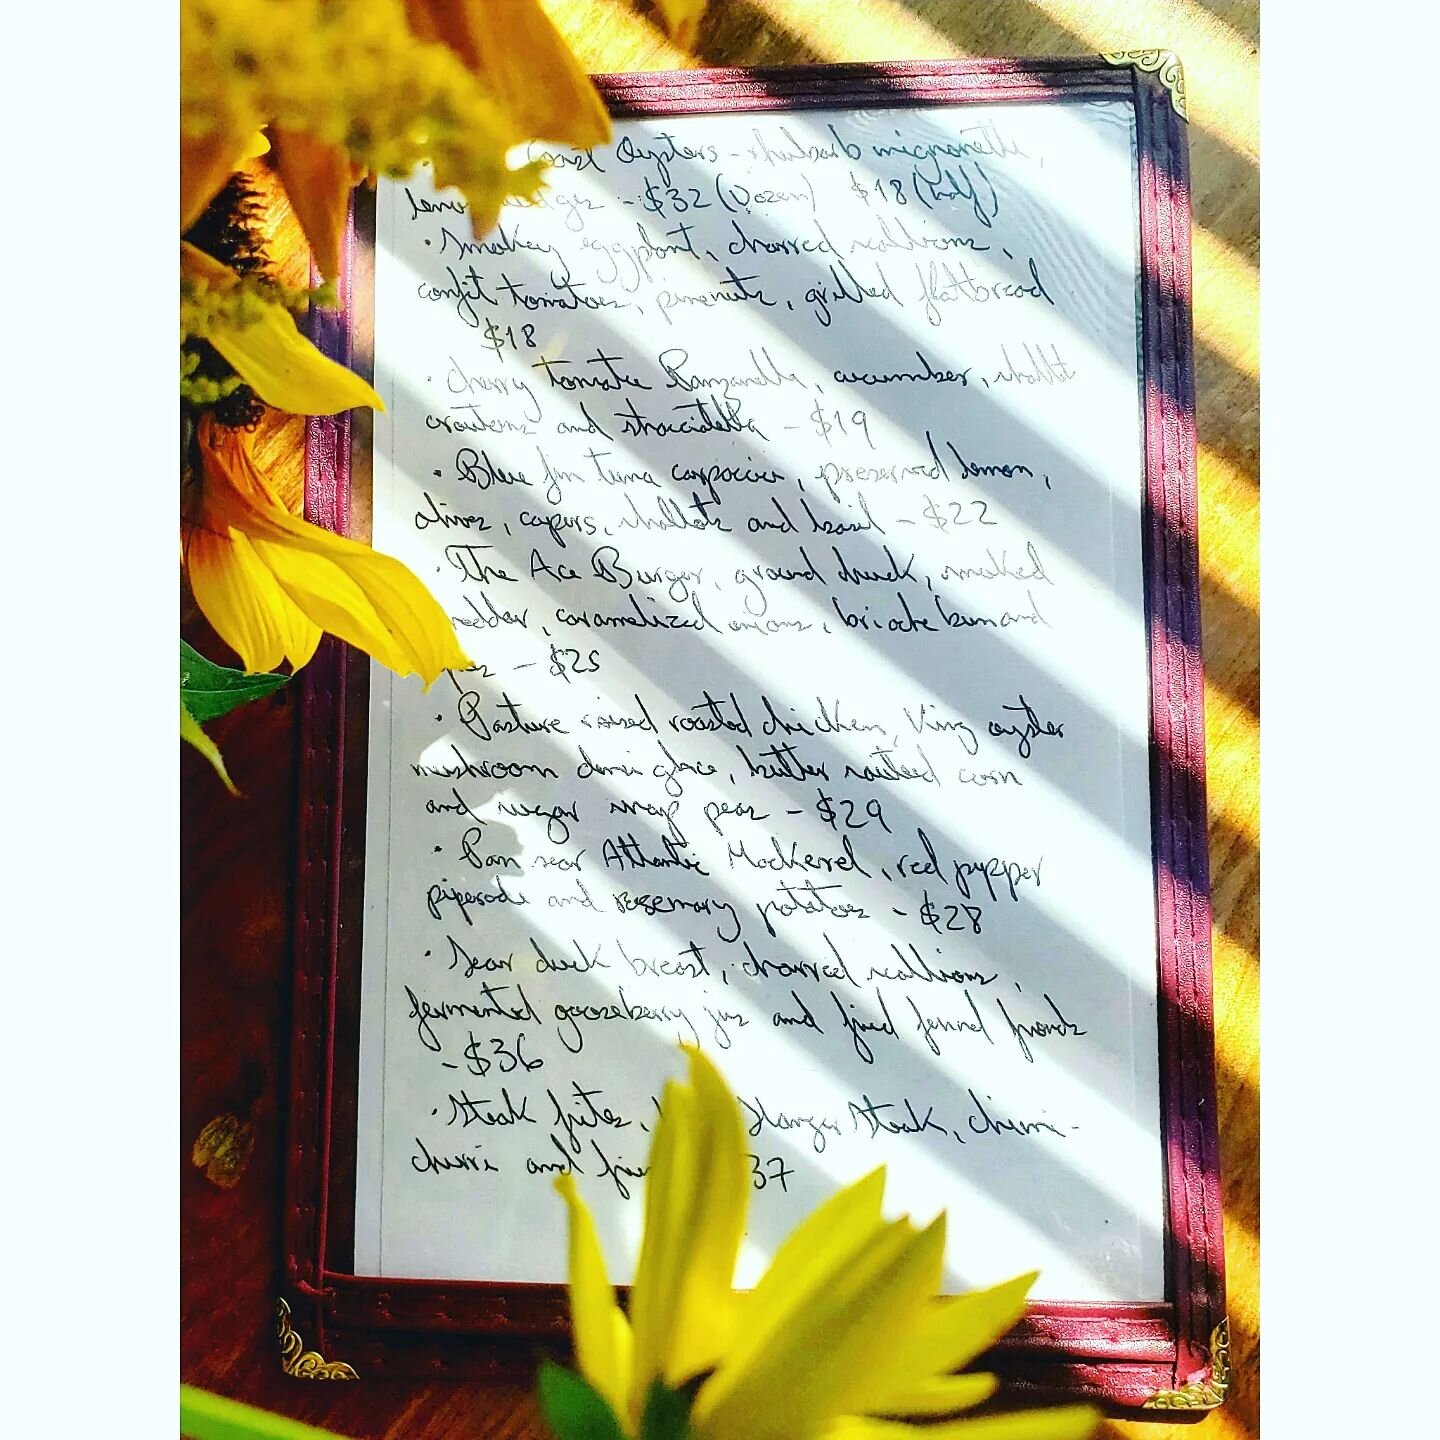 Coast Oysters - rhubarb mignonette,
- $32 (Dozen) $18 (half)
· Smokey eggplant, charred scallions,
confit tomatoes, pinenuts, grilled flatbread
$18
· cherry tomatoe Panzanella, cucumber, shallot
croutons and stracciatella - $19
· Blue fin tuna carpaccio, preserved lemon,
olives, capers, shallots and basil - $22
· The Ace Burger, ground chuck, smoked
caramelized onions, brioche bun and
- $25
· Pasture raised roasted chicken, King oyster
mushroom demi glace, butter sauteed corn
and sugar snap peas - $29
· Pan sear Atlantic Mackerel, red pepper
piperade and rosemary potatoes - $28
· Sear duck breast, charred scallions,
fermented gooseberry jus and fried fennel fronds
- $36
· Steak frites, Hanger Steak, chimi-
churri and 37